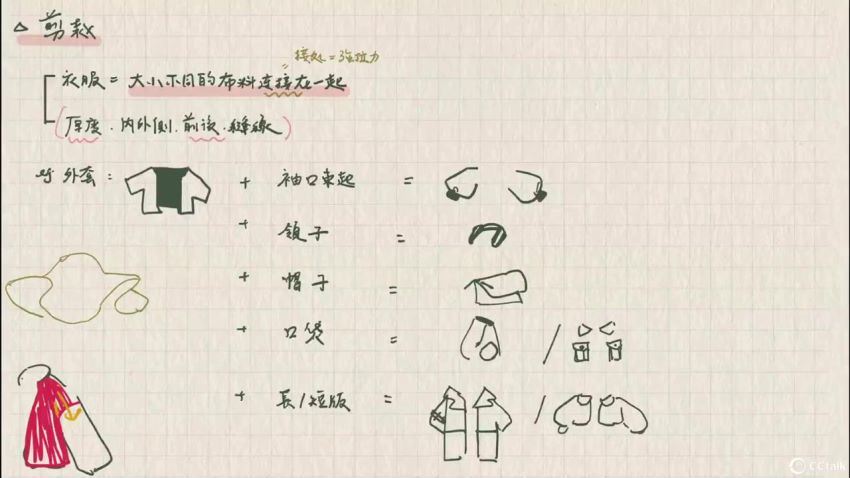 △ 剪裁
接处=强拉力
衣服 = 大小不同的布料连接在一起
(厚度.内外侧.前後.縫線)
eg 外套:
+ 袖口束起 =
+ 領子 =
+ 帽子 =
+ 口袋 =
+ 長/短版 =
CCtalk